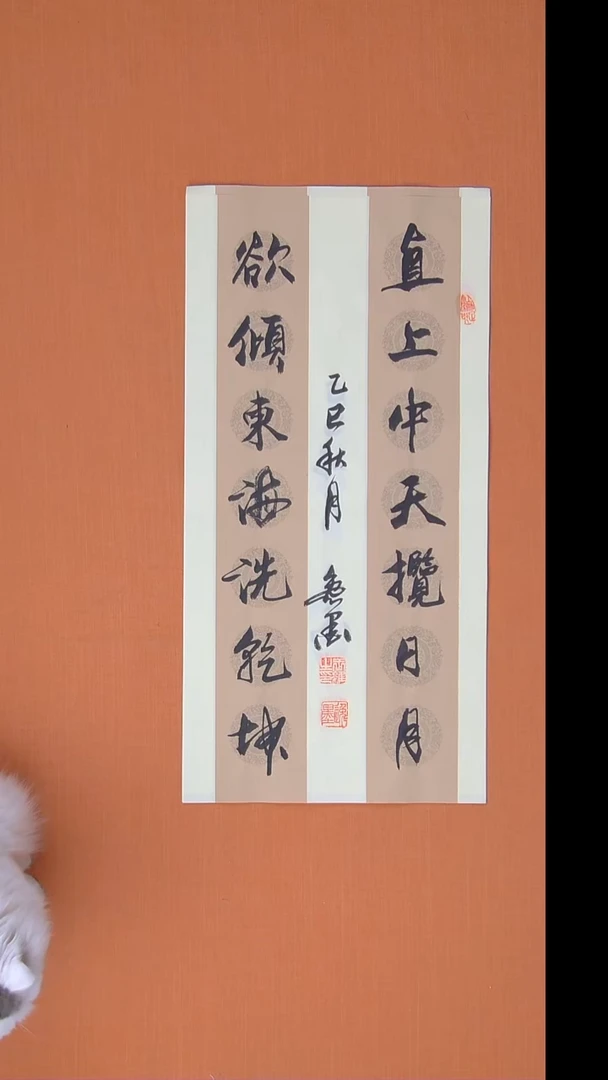 直上中天攬月月
欲傾東海洗乾坤
乙巳秋月